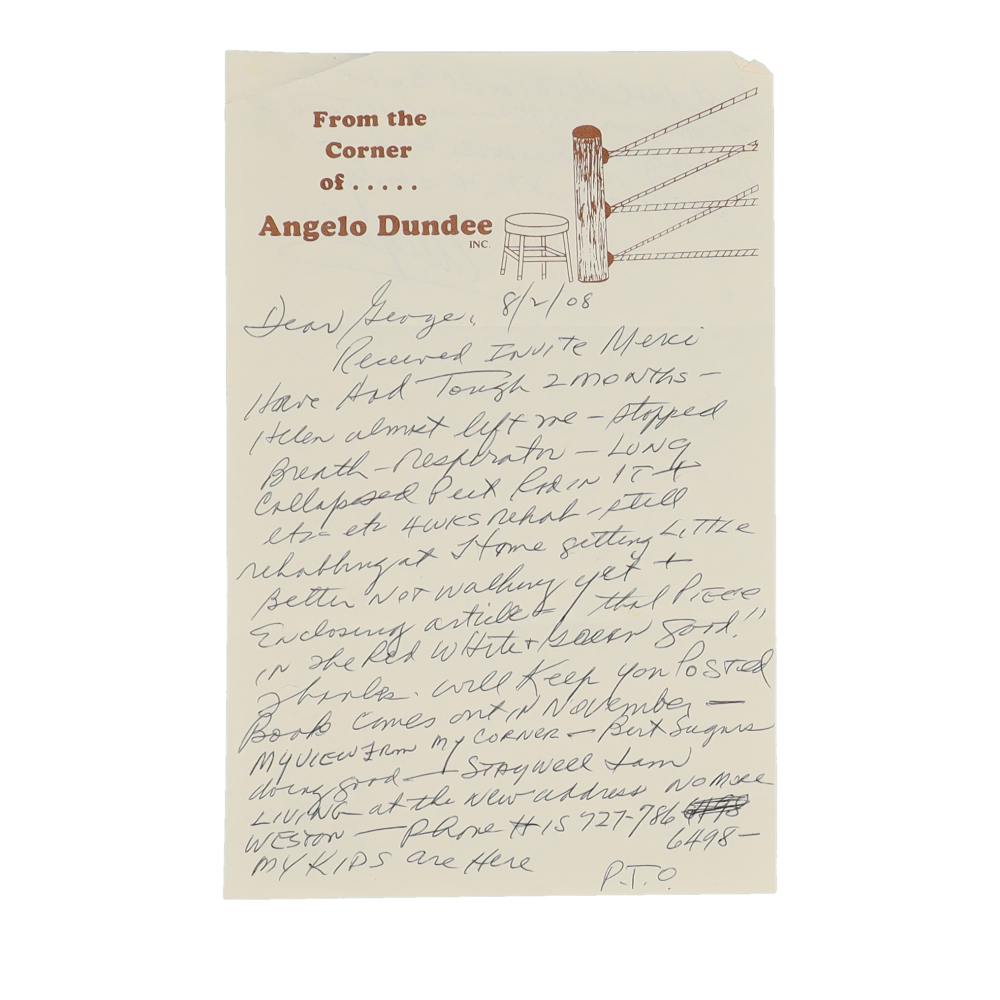 From the
Corner
of . . . . .
Angelo Dundee
INC.
Dear George, 8/2/08
Received Invite Merci
Have Had Tough 2 MONTHS -
Helen almost left me - stopped
Breath - Respirator - LUNG
Collapsed Peet Rod in IT +
etc - etc 4 WKS rehab - still
rehabbing at Home getting LITTLE
Better NOT walking yet +
Enclosing article - that PIECE
in the Red WHite + green good!!
Thanks. will Keep you POSTED
Book comes out in November -
MY VIEW From MY CORNER - Bert Sugars
doing good - STAY well I am
LIVING at the New address NO MORE
WESTON - PHone # IS 727-786
6498 -
MY KIDS are Here
P.T.O.